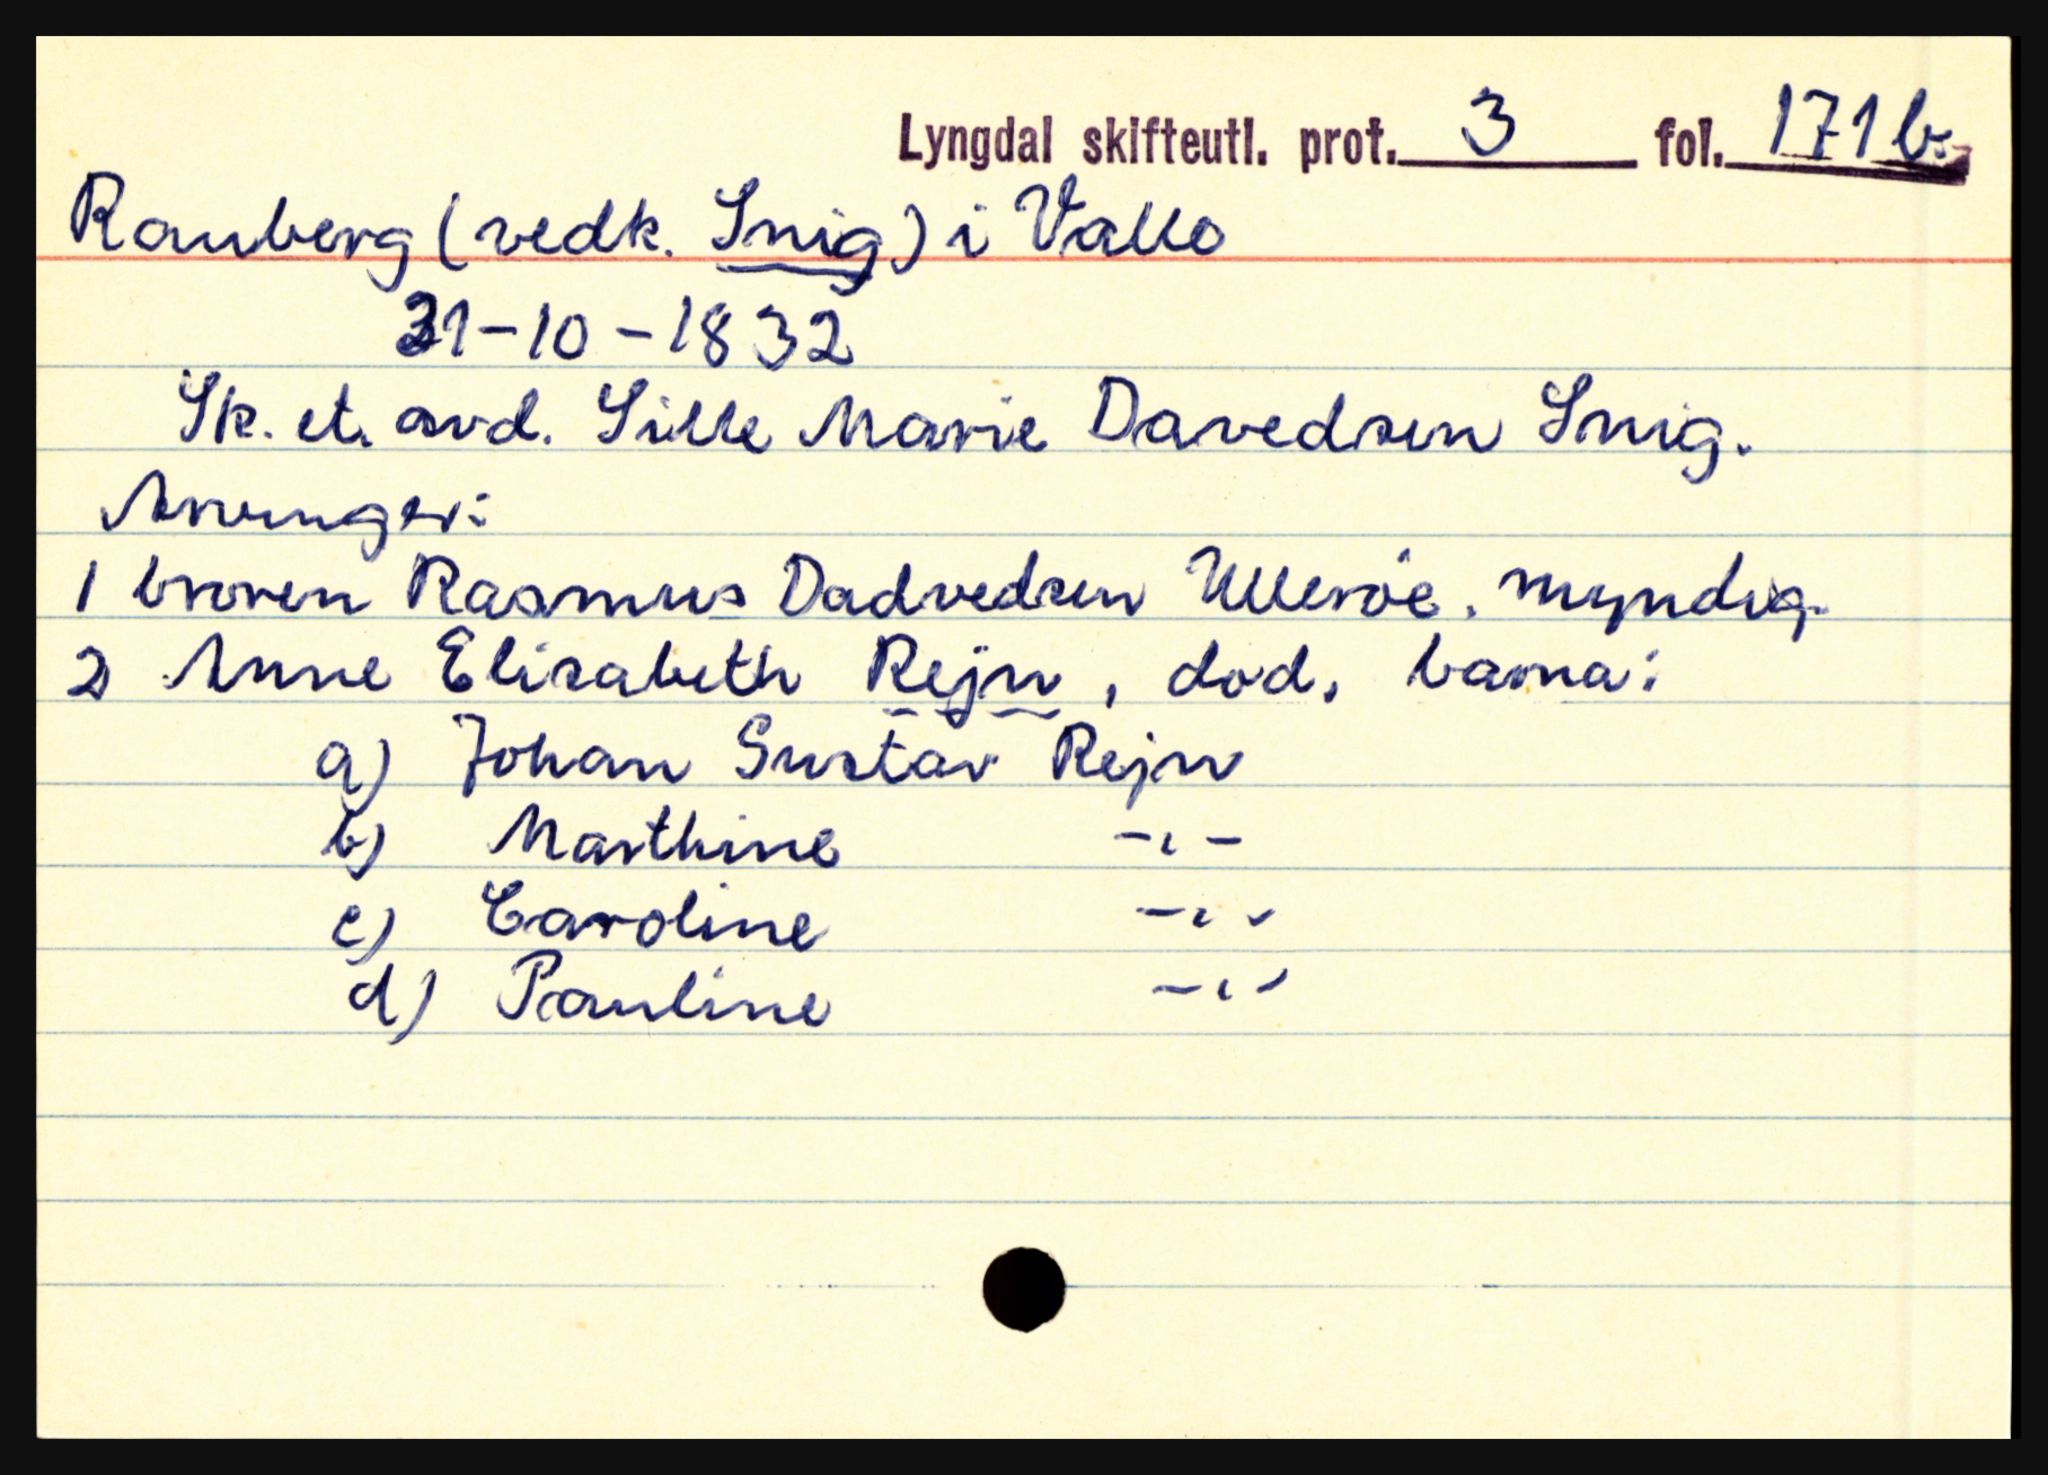 Lyngdal skifteutl. prot. 3 fol. 171b.
Rauberg (vedk. Snig) i Vallo
31-10-1832
Sk. et. avd. Sille Marie Davedsen Snig.
Arvinger:
1 broren Rasmus Dadvedsen Ulleröe, myndig.
2 Anne Elisabeth Rejn, død, barna:
a) Johan Gustav Rejn
b) Marthine -"-
c) Caroline -"-
d) Pauline -"-